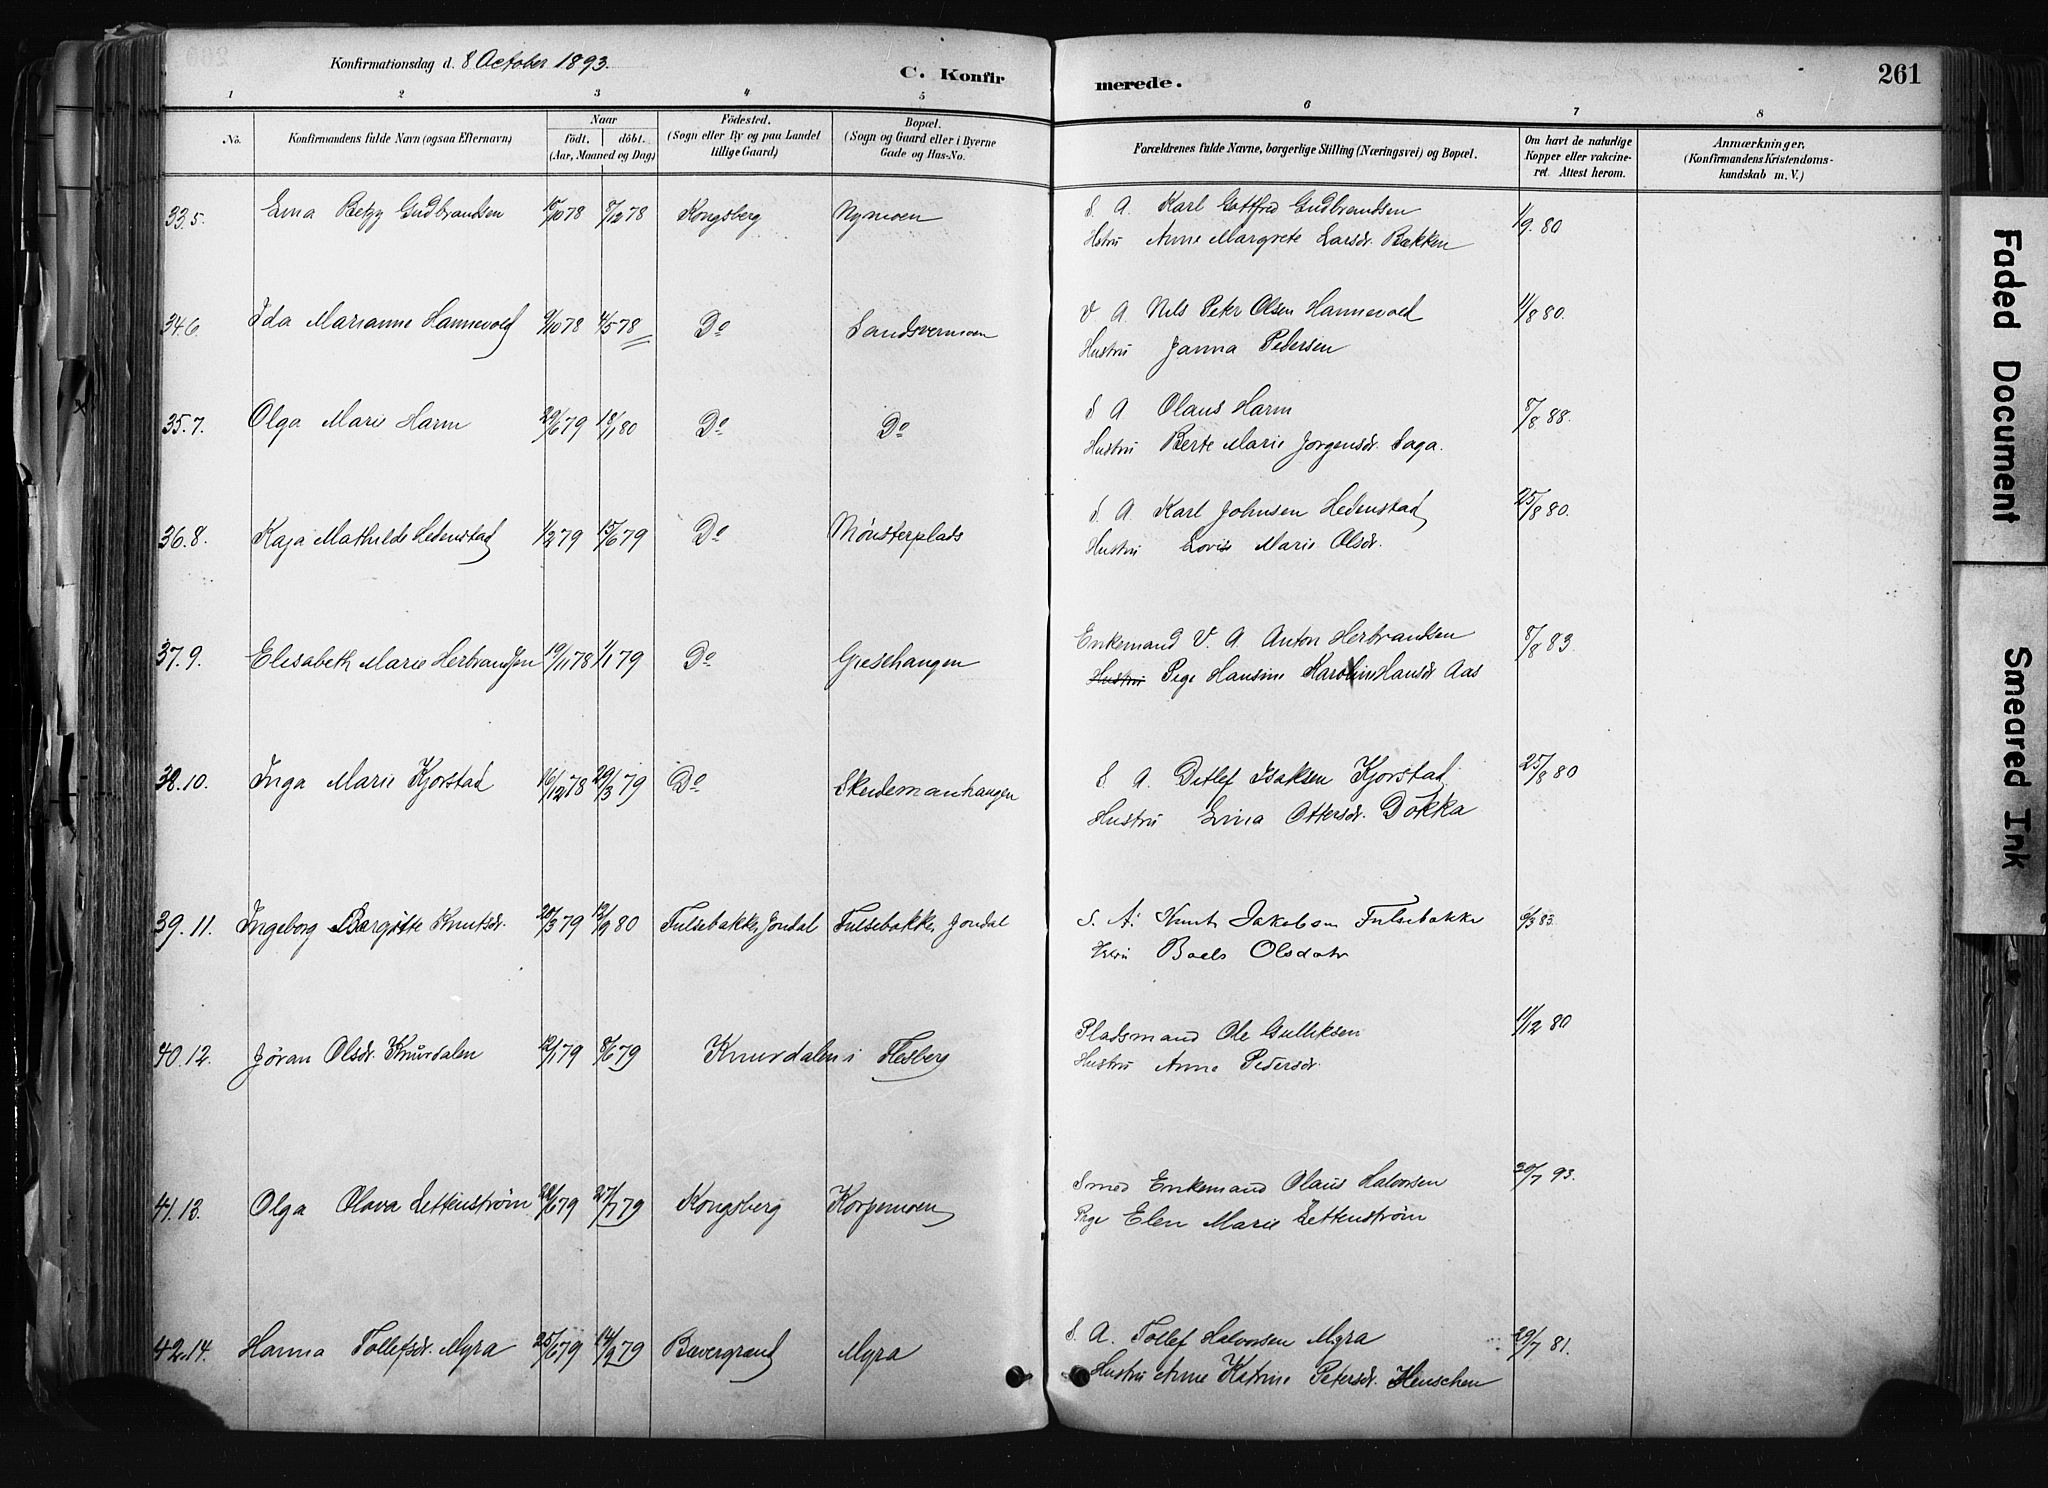 Konfirmationsdag d. 8 October 1893.
C. Konfirmerede.
261
1 2 3 4 5 6 7 8
No.
Konfirmandens fulde Navn (ogsaa Efternavn)
Naar
födt. döbt.
(Aar, Maaned og Dag)
Födested.
(Sogn eller By og paa Landet
tillige Gaard)
Bopæl.
(Sogn og Gaard eller i Byerne
Gade og Hus-No.
Forældrenes fulde Navne, borgerlige Stilling (Næringsvei) og Bopæl.
Om havt de naturlige
Kopper eller vakcine-
ret. Attest herom.
Anmærkninger.
(Konfirmandens Kristendoms-
kundskab m. V.)
33.5. Lina Betzy Gudbrandsen 15/10 78 8/12 78 Kongsberg Nymoen S. A. Karl Gottfred Gudbrandsen 1/9. 80
Hstru Anne Margrete Larsdr. Bækken
34.6 Ida Marianne Hannevold 9/10 78 4/5 78 Do Sandsvermoen V A Nils Peter Olsen Hannevold 11/8 80.
Hustru Janna Pedersen
35.7. Olga Marie Harm 29/6 79 18/1 80 Do Do S A Olaus Harm 8/8 88.
Hustru Berte Marie Jörgensdr. Saga.
36.8. Kaja Mathilde Hedenstad 1/2 79 15/6 79 Do Mønsterplads S. A. Karl Johnsen Hedenstad 25/8 80.
Hustru Lovise Marie Olsdr.
37.9. Elisabeth Marie Herbrandsen 19/11 78 1/1 79 Do Gresehaugen Enkemand V. A Anton Herbrandsen 8/8 83.
Hustru Pige Hansine Karoline Hansdr Aas
38.10. Inga Marie Kjørstad 16/12 78 29/3 79 Do Skeidemanhaugen S A. Ditlef Isaksen Kjørstad 25/8 80
Hustru Lina Ottersdr. Dokka
39. 11. Ingeborg Bergitte Knutsdr. 20/3 79 12/9 80 Fulsebakke, Jondal Fulsebakke, Jondal S. A. Knut Jakobsen Fulsebakke 6/3 83.
Hstru Boels Olsdatr
40.12. Jøran Olsdr. Knurdalen 12/1 79 8/6 79 Knurdalen i Flesberg Pladsmand Ole Gulliksen 11/12 80
Hustru Anne Pedersdr.
41.13. Olga Olava Zettenstrøm 28/6 79 27/7 79 Kongsberg Korpemoen Smed Enkemand Olaus Halvorsen 20/7 93.
Pige Elen Marie Zettenstrøm
42.14. Hanna Tollefsdr. Myra 25/6 79 14/9 79 Bævergrænd Myra S. A. Tollef Halvorsen Myra 29/7 81.
Hustru Anne Katrine Petersdr. Henschen
Faded Document
Smeared Ink